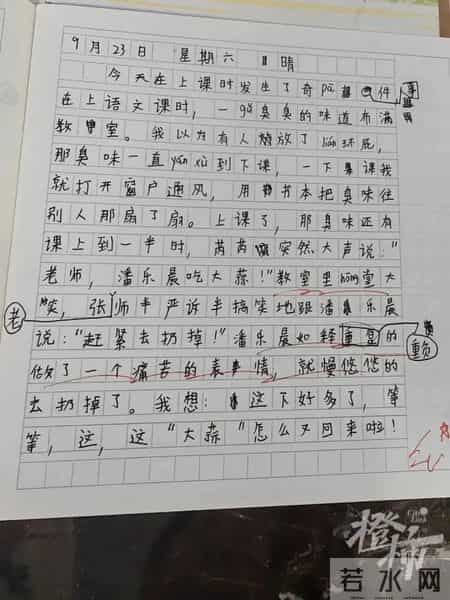 9月23日 星期六 晴
今天在上课时发生了奇pā事件
在上语文课时，一gǔ臭臭的味道布满
教室。我以为有人燃放了lián环屁，
那臭味一直yán xù到下课，一下课我
就打开窗户通风，用书本把臭味往
别人那扇了扇。上课了，那臭味还有
课上到一半时，芮芮突然大声说："
老师，潘乐晨吃大蒜！"教室里hōng堂大
笑，张老师半严诉半搞笑地跟潘乐晨
说："赶紧去扔掉！"潘乐晨如释重负的
做了一个痛苦的表情，就慢悠悠的
去扔掉了。我想：这下好多了，等
等，这，这"大蒜"怎么又回来啦！
橙柿
若水网